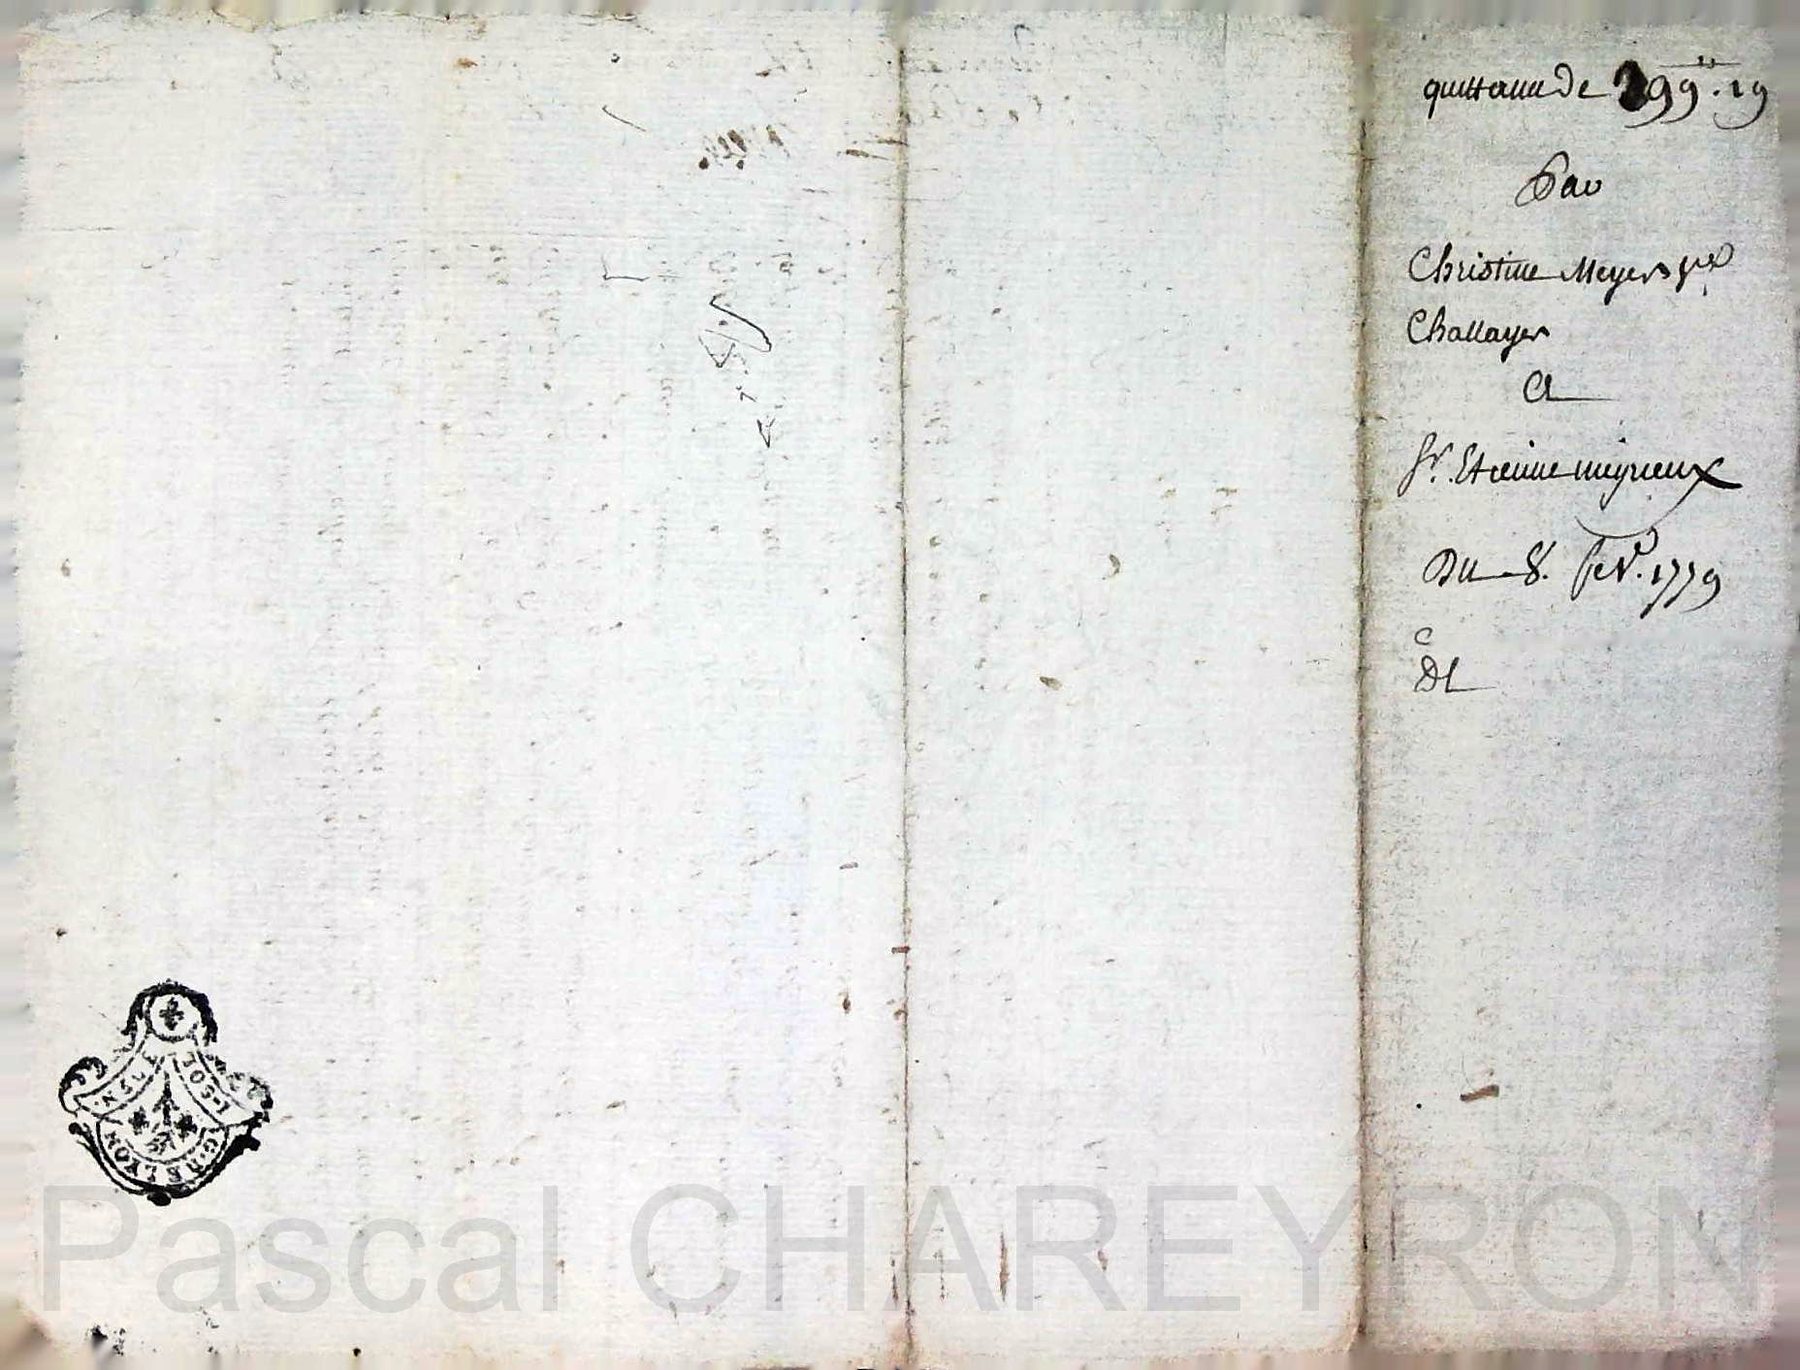 quittance de 399ᵗᵗ. 19
Par
Christine Meyer vᵉ
Challayer
A
Sʳ. Etienne meyrieux
Du 8. fevʳ. 1779
C
DL
G. DE LYON
Pascal CHAREYRON